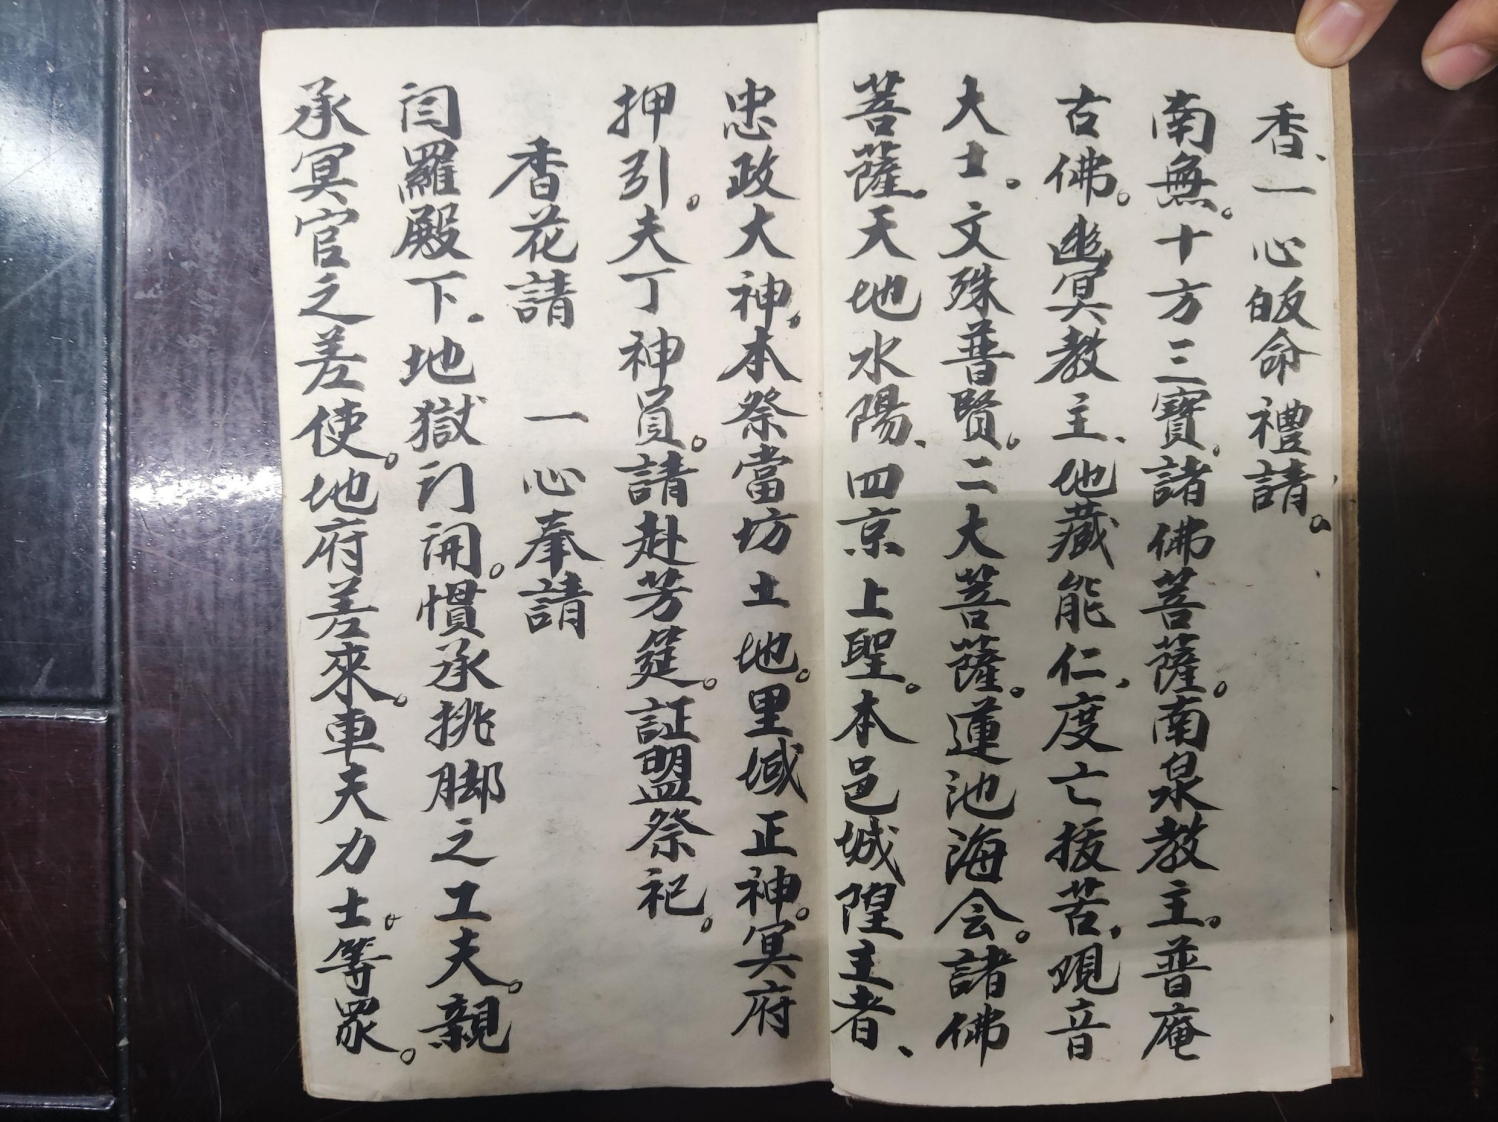 香、一心皈命禮請。
南無。十方三寶。諸佛菩薩。南泉教主。普庵
古佛。幽冥教主、地藏能仁、度亡拔苦、覌音
大士。文殊普賢。二大菩薩。蓮池海会。諸佛
菩薩。天地水陽、四京上聖。本邑城隍主者、
忠政大神。本祭當坊土地。里域正神。冥府
押引。夫丁神員。請赴芳筵。証盟祭祀。
香花請　一心奉請
闫羅殿下。地獄门開。慣承挑脚之工夫。親
承冥官之差使。地府差來。車夫力士。等眾。